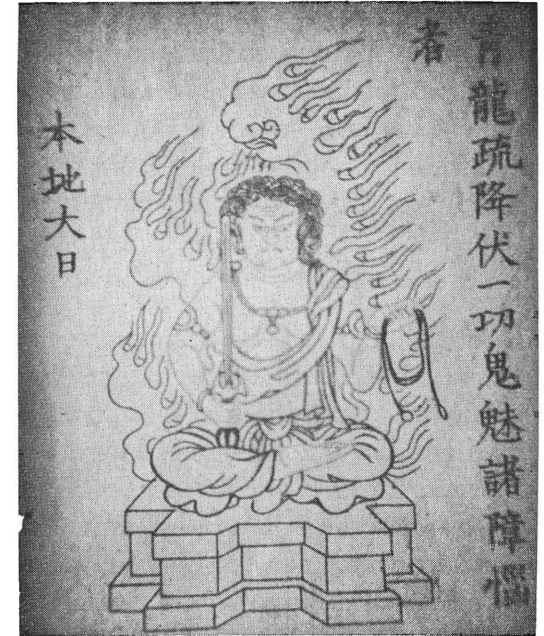 青龍疏降伏一切鬼魅諸障惱
者
本地大日